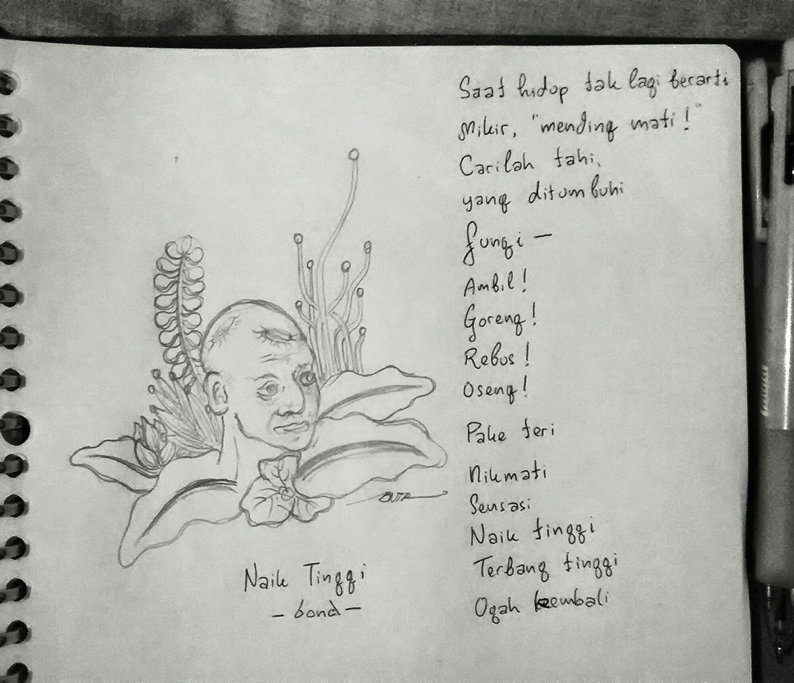 Saat hidup tak lagi berarti
Mikir, "mending mati!"
Carilah tahi,
yang ditumbuhi
fungi —
Ambil!
Goreng!
Rebus!
Oseng!
Pake teri
Nikmati
Sensasi
Naik tinggi
Terbang tinggi
Ogah kembali
Naik Tinggi
- bond -